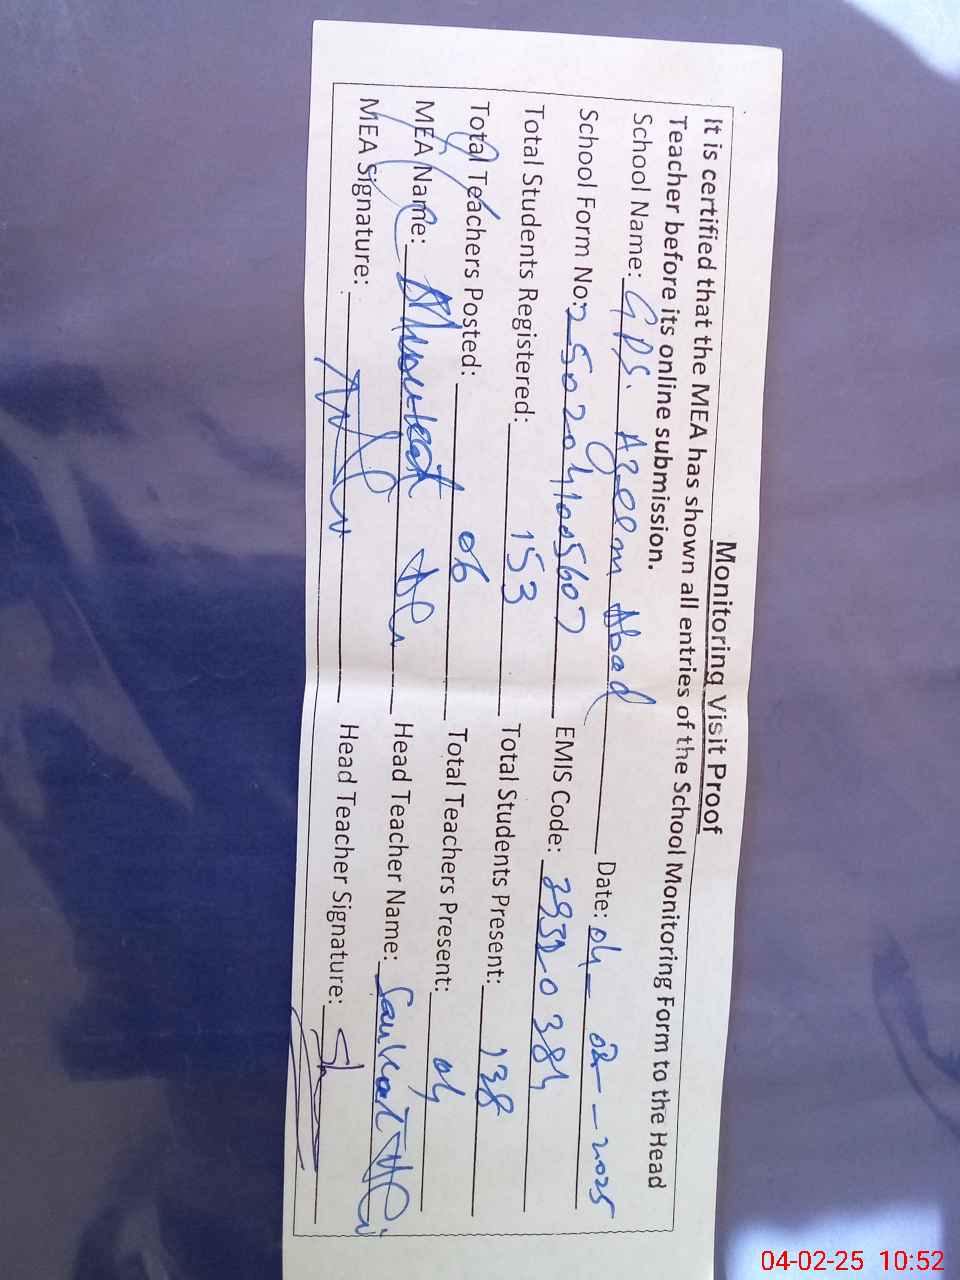 Monitoring Visit Proof
It is certified that the MEA has shown all entries of the School Monitoring Form to the Head
Teacher before its online submission.
School Name: GPS. Azeem Abad Date: 04-02-2025
School Form No: 25020410056 EMIS Code: 384
Total Students Registered: 153 Total Students Present: 138
Total Teachers Posted: 06 Total Teachers Present: 04
MEA Name: Ali Head Teacher Name: Saukat Ali
MEA Signature: Head Teacher Signature:
04-02-25 10:52